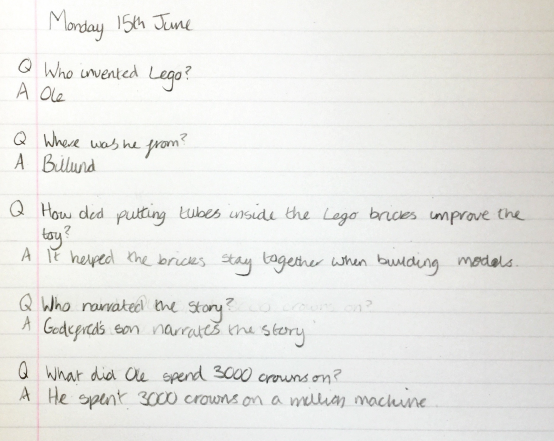 Monday 15th June
Q Who invented Lego?
A Ole
Q Where was he from?
A Billund
Q How did putting tubes inside the Lego bricks improve the
toy?
A It helped the bricks stay together when building models.
Q Who narrated the story?
A Godtfred's son narrates the story
Q What did Ole spend 3000 crowns on?
A He spent 3000 crowns on a machine